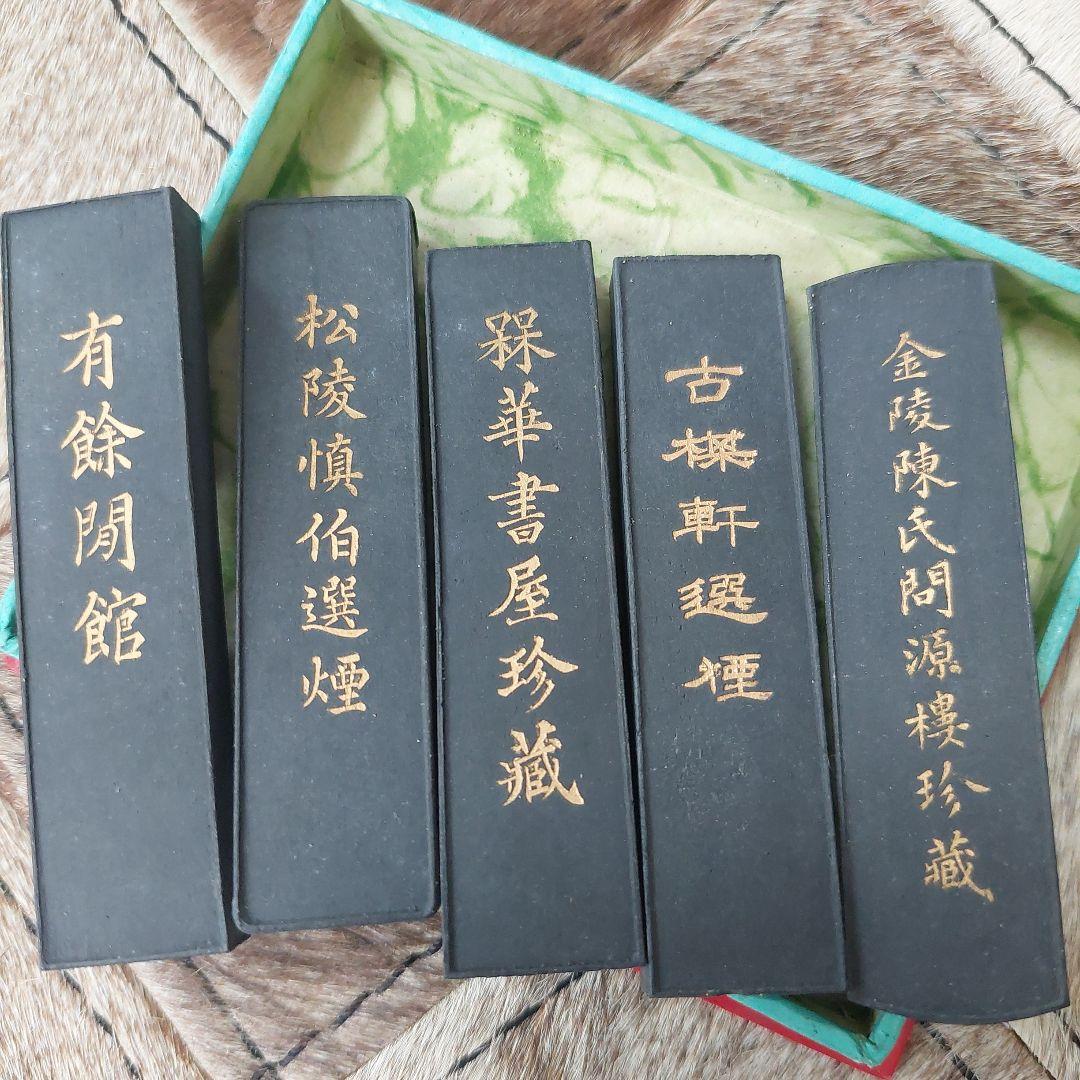 有餘閒館
松陵慎伯選煙
槑華書屋珍藏
古軒選煙
金陵陳氏問源樓珍藏